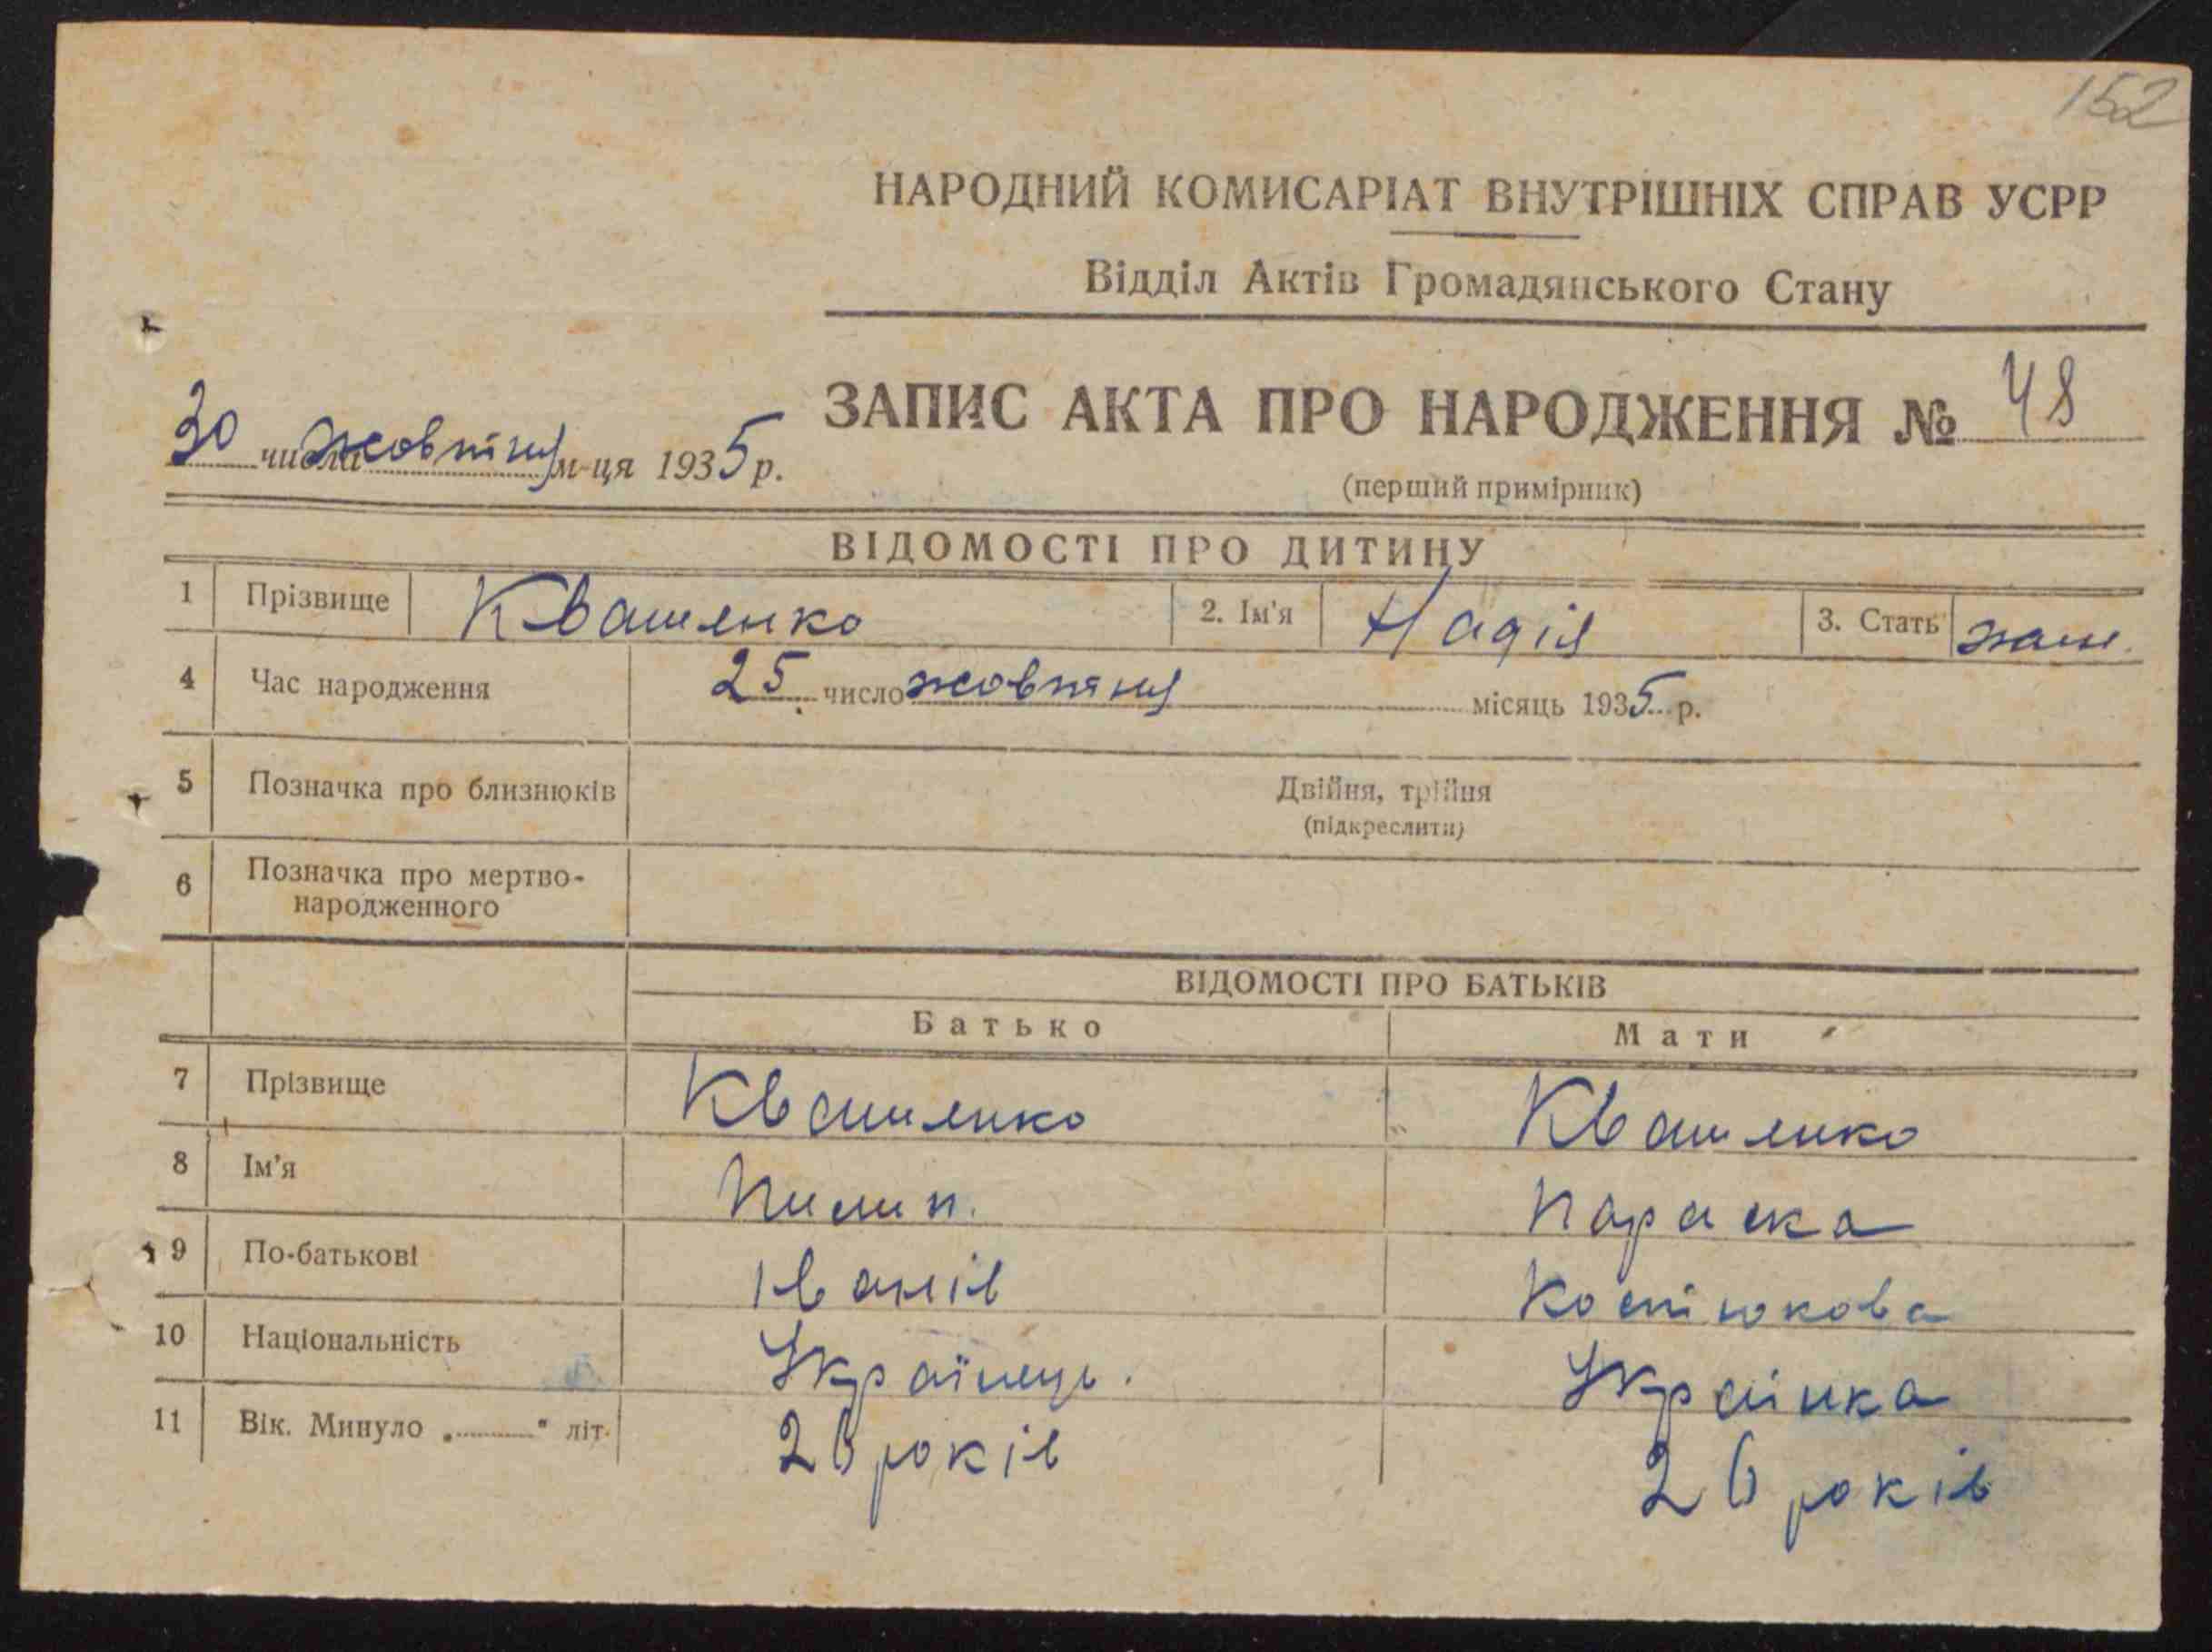 152
НАРОДНИЙ КОМИСАРІАТ ВНУТРІШНІХ СПРАВ УСРР
Відділ Актів Громадянського Стану
ЗАПИС АКТА ПРО НАРОДЖЕННЯ № 48
30 числа жовтня м-ця 1935 р.
(перший примірник)
ВІДОМОСТІ ПРО ДИТИНУ
1 Прізвище Квашенко 2. Ім'я Надія 3. Стать
4 Час народження 25 число жовтня місяць 1935 р.
5 Позначка про близнюків Двійня, трійня
(підкреслити)
6 Позначка про мертво-
народженного
ВІДОМОСТІ ПРО БАТЬКІВ
Батько Мати
7 Прізвище Квашенко Квашенко
8 Ім'я Пилип. Параска
9 По-батькові Іванів Костюкова
10 Національність Українець. Українка
11 Вік. Минуло „ " літ. 26 років 26 років